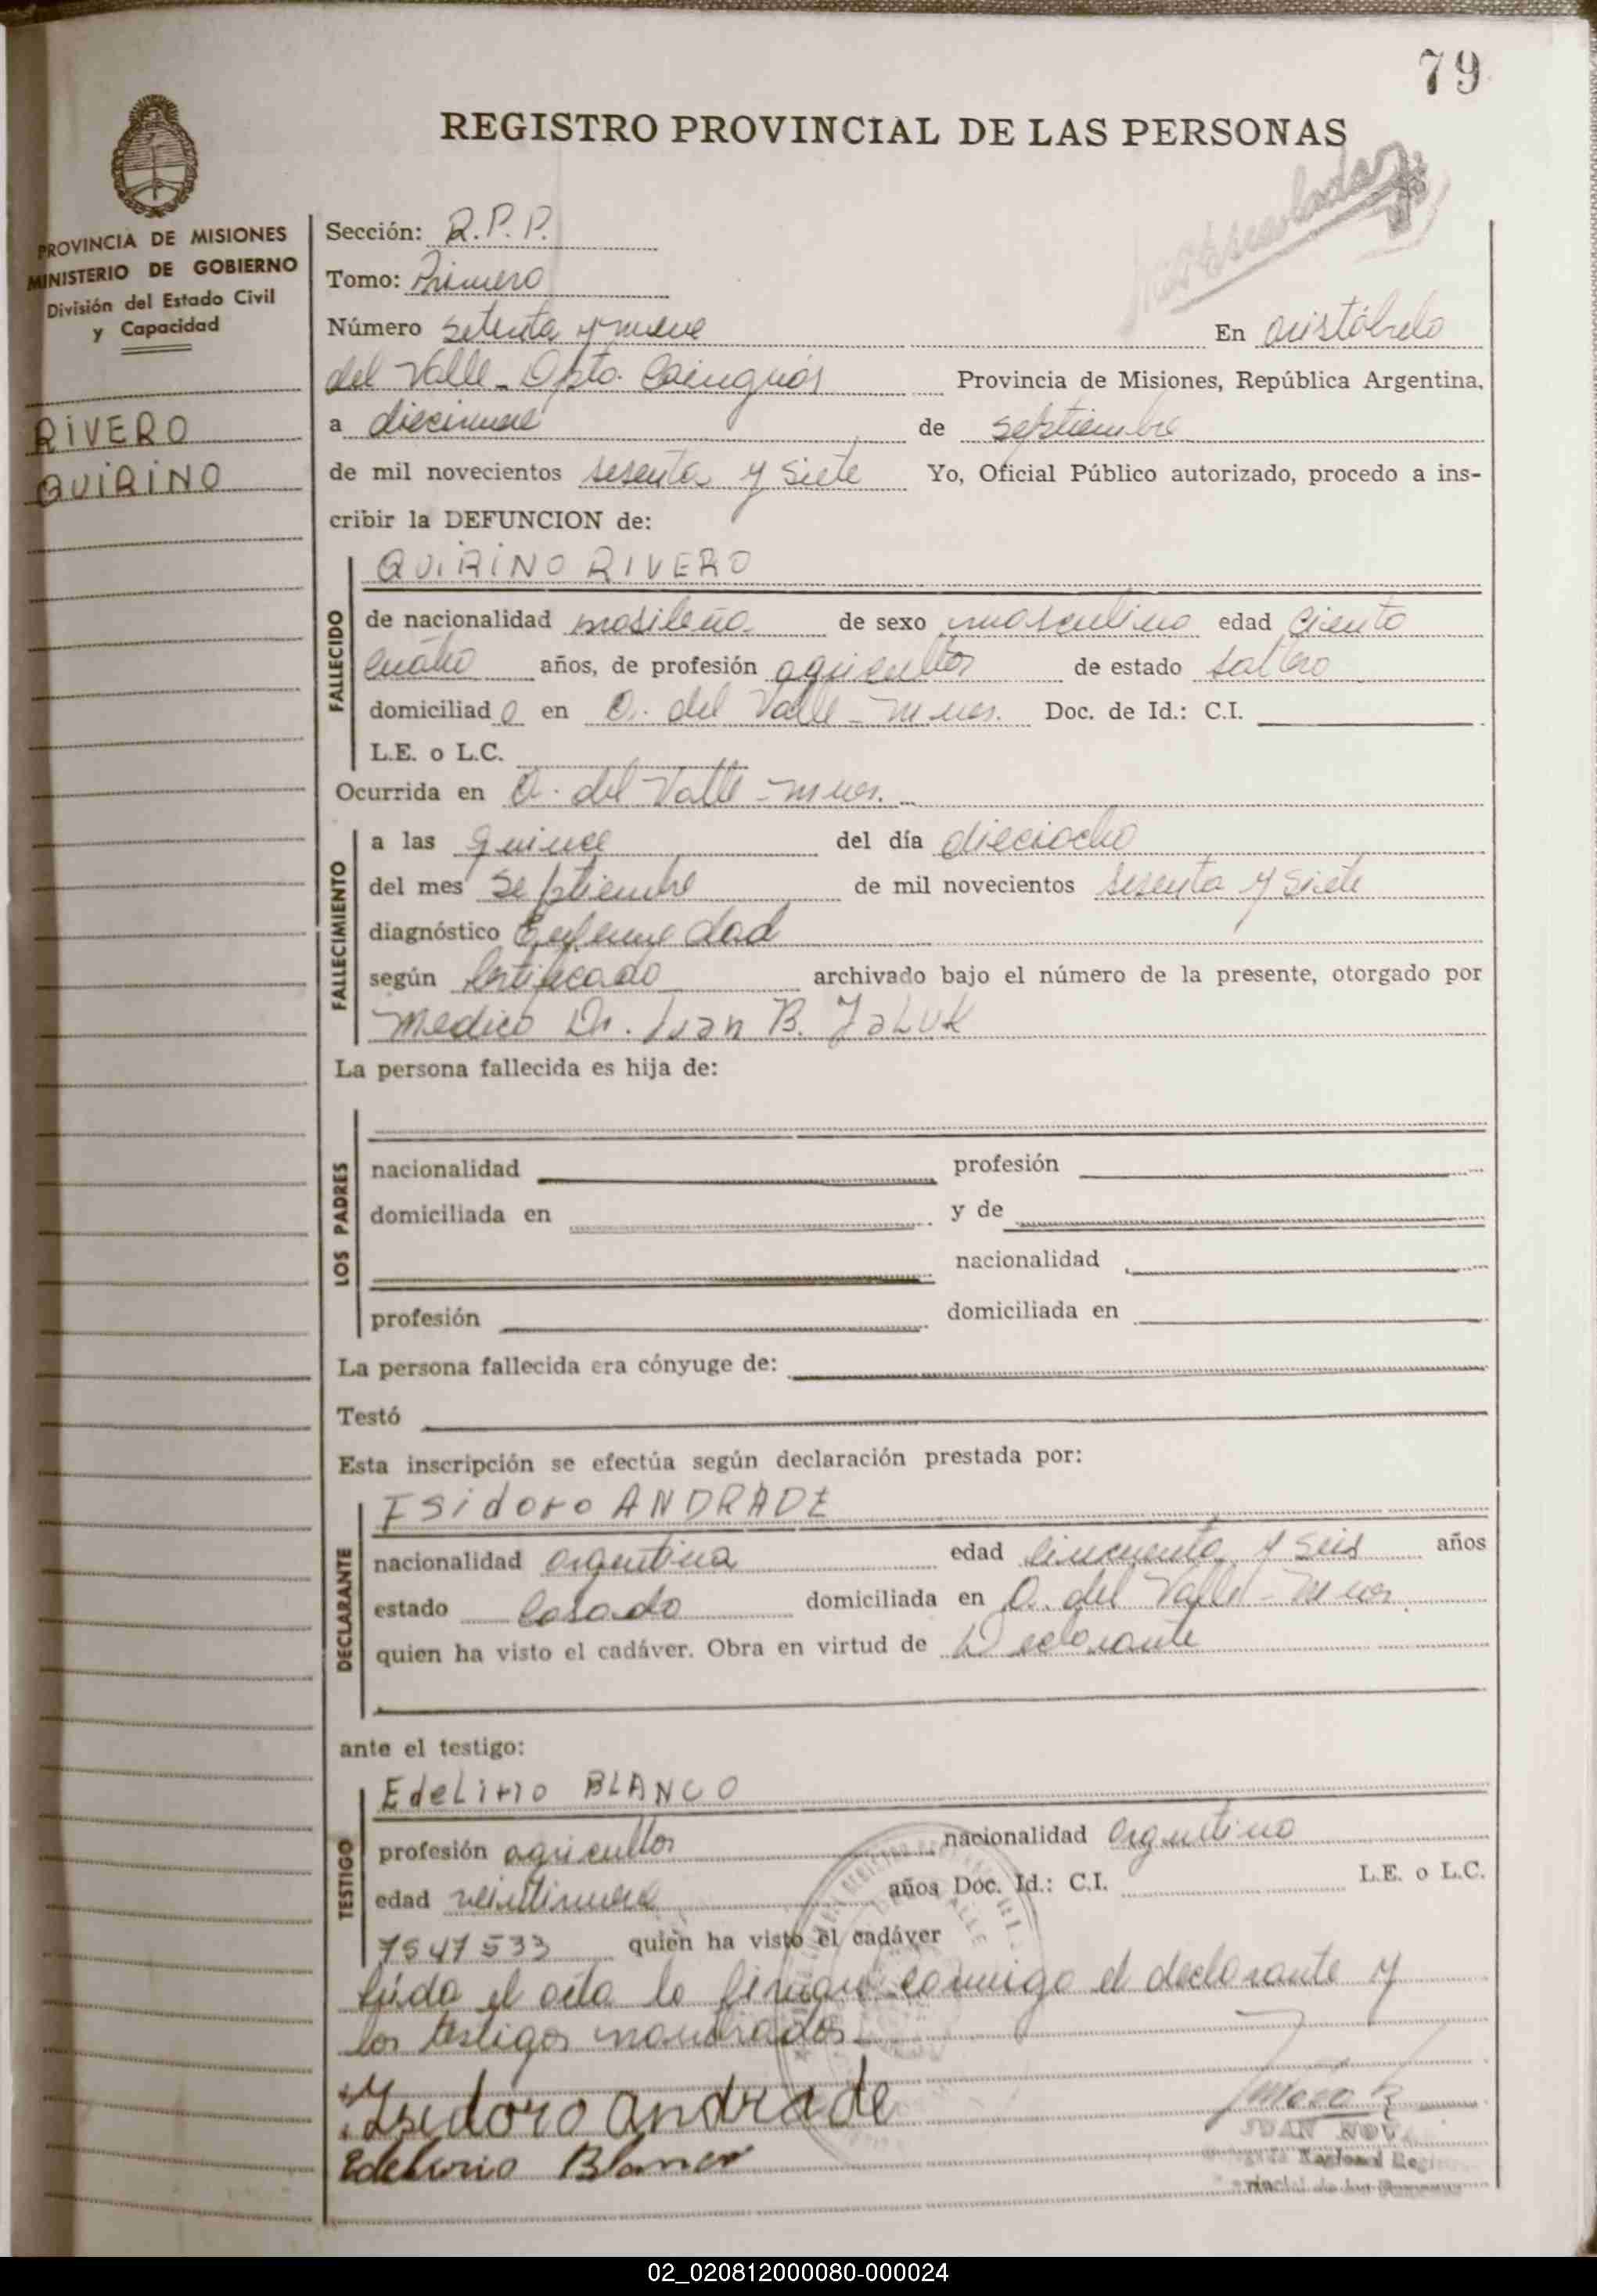 79
REGISTRO PROVINCIAL DE LAS PERSONAS
PROVINCIA DE MISIONES
MINISTERIO DE GOBIERNO
División del Estado Civil
y Capacidad
RIVERO
QUIRINO
Sección: R.P.P.
Tomo: Primero
Número setenta y nueve En aristóbulo
del Valle - Dpto. Cainguás Provincia de Misiones, República Argentina,
a diecinueve de septiembre
de mil novecientos sesenta y siete Yo, Oficial Público autorizado, procedo a ins-
cribir la DEFUNCION de:
FALLECIDO
QUIRINO RIVERO
de nacionalidad brasileña de sexo masculino edad Ciento
cuatro años, de profesión agricultor de estado soltero
domiciliado en A. del Valle - Mnes. Doc. de Id.: C.I.
L.E. o L.C.
Ocurrida en A. del Valle - Mnes.
FALLECIMIENTO
a las quince del día dieciocho
del mes Septiembre de mil novecientos sesenta y siete
diagnóstico Enfermedad
según Certificado archivado bajo el número de la presente, otorgado por
Medico Dr. Ivan B. Zaluk
La persona fallecida es hija de:
LOS PADRES
nacionalidad profesión
domiciliada en y de
nacionalidad
profesión domiciliada en
La persona fallecida era cónyuge de:
Testó
Esta inscripción se efectúa según declaración prestada por:
DECLARANTE
Isidoro ANDRADE
nacionalidad argentina edad Cincuenta y seis años
estado Casado domiciliada en A. del Valle - Mnes.
quien ha visto el cadáver. Obra en virtud de Declarante
ante el testigo:
TESTIGO
Edelirio BLANCO
profesión agricultor nacionalidad argentino
edad veintinueve años Doc. Id.: C.I. L.E. o L.C.
7547533 quien ha visto el cadáver
Leída el acta la firman conmigo el declarante y
los testigos nombrados.-
Isidoro Andrade
Edelirio Blanco
JUAN NOV
02_020812000080-000024